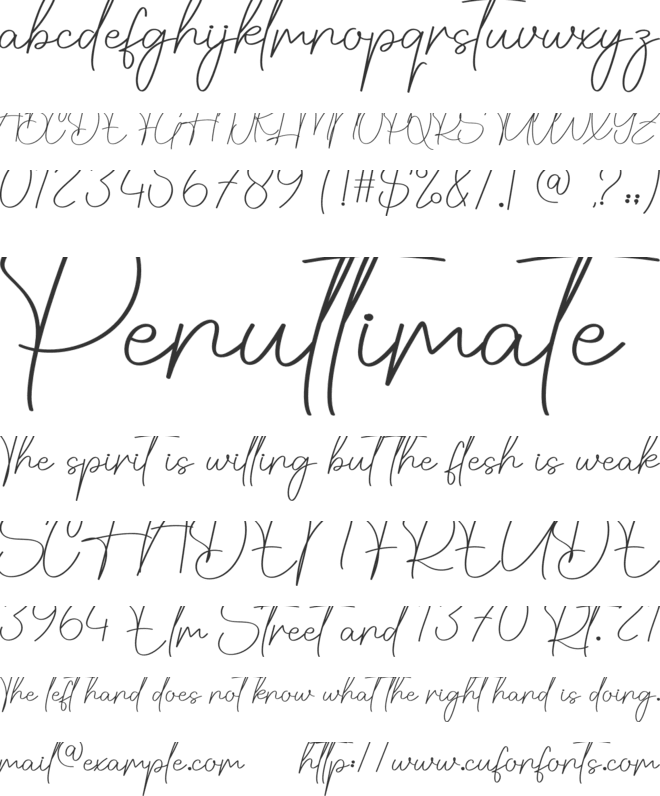 abcdefghijklmnopqrstuvwxyz
ABCDEFGHIJKLMNOPQRSTUVWXYZ
0123456789 (!#$%&/.| @ ?:;)
Penultimate
The spirit is willing but the flesh is weak
SCHADENFREUDE
3964 Elm Street and 1370 Rt. 21
The left hand does not know what the right hand is doing.
mail@example.com http://www.cufonfonts.com